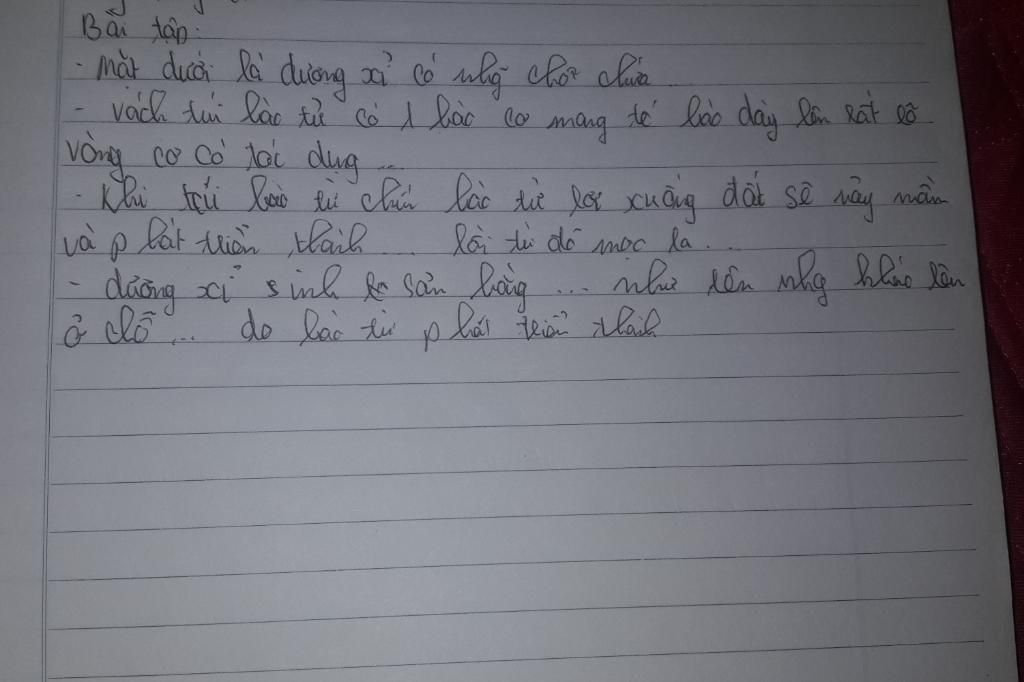 Bài tập:
- Mặt dưới lá dương xỉ có nhg chứa
- vách túi bào tử có 1 cơ mang tế bào dày lên rất rõ
vòng cơ có tác dụng ...
- Khi túi bào tử chín bào tử rơi xuống đất sẽ nảy mầm
và phát triển thành ... rồi từ đó mọc ra ...
- dương xỉ sinh sản bằng ... như rêu nhg khác rêu
ở chỗ ... do bào tử phát triển thành